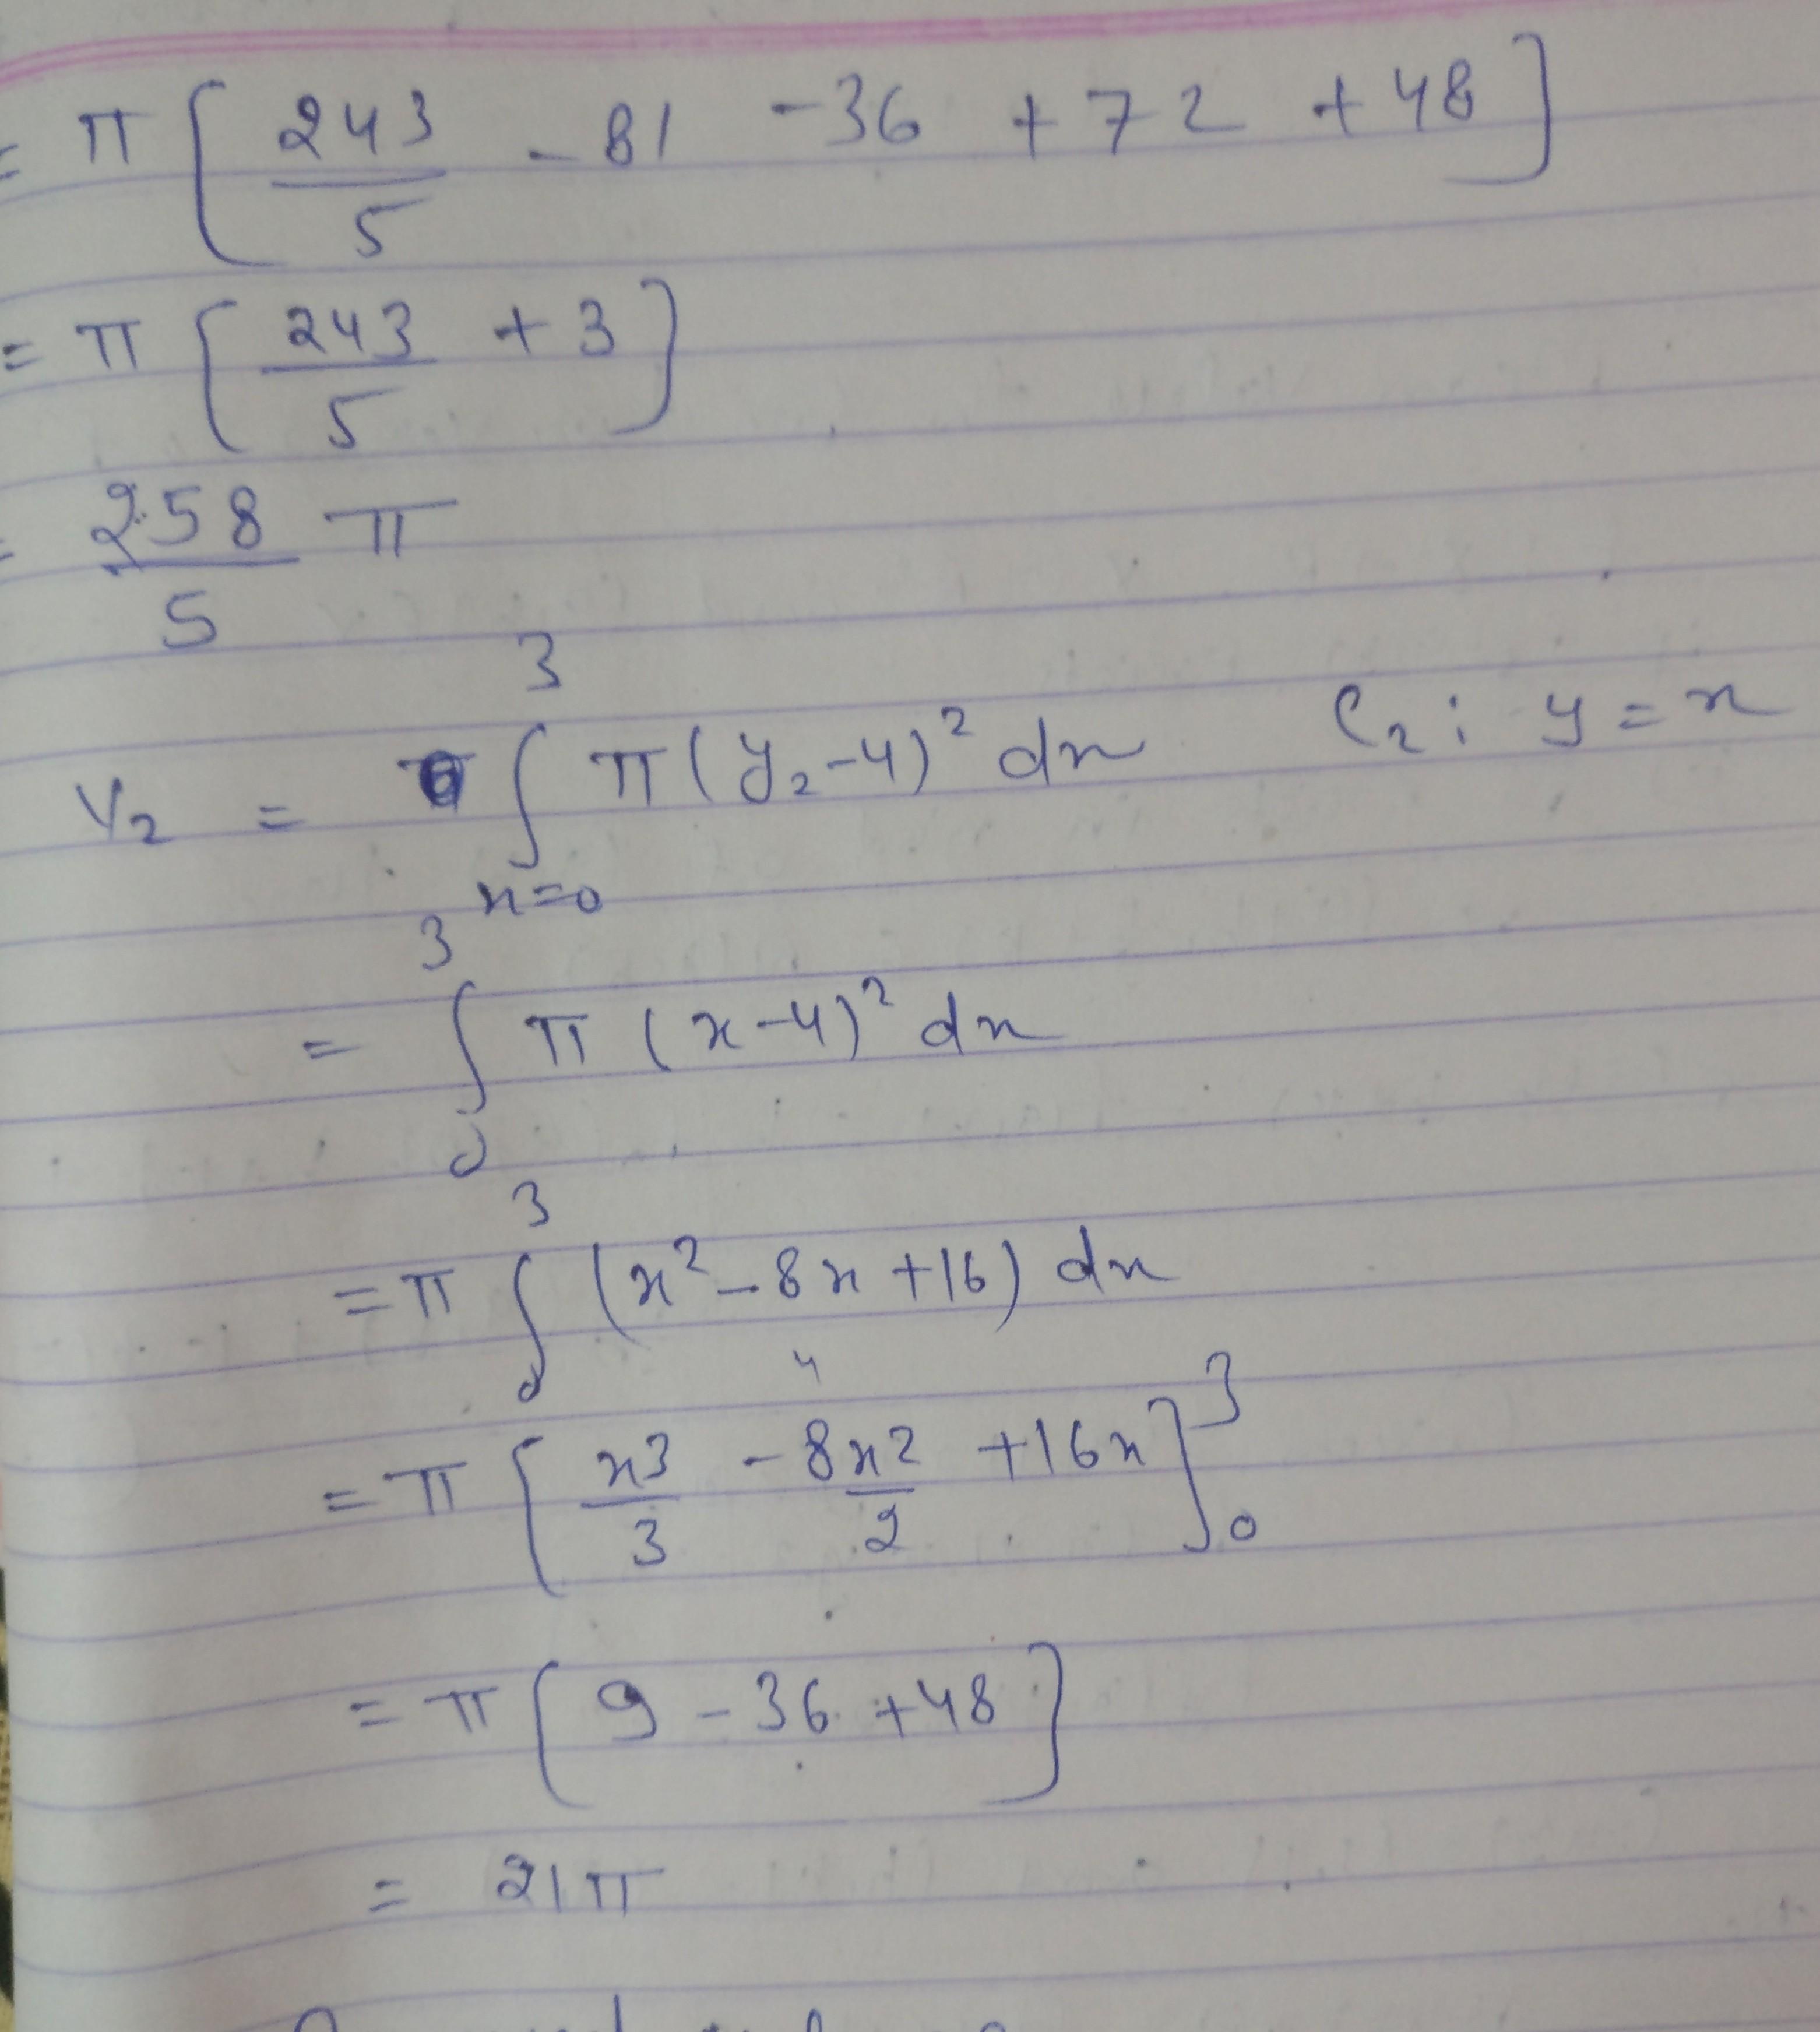 = π [ 243/5 - 81 - 36 + 72 + 48 ]
= π [ 243/5 + 3 ]
= 258/5 π
V₂ = ∫_{x=0}^{3} π (y₂-4)² dx C₂ : y = x
= ∫_{0}^{3} π (x-4)² dx
= π ∫_{0}^{3} (x² - 8x + 16) dx
= π [ x³/3 - 8x²/2 + 16x ]_{0}^{3}
= π [ 9 - 36 + 48 ]
= 21π